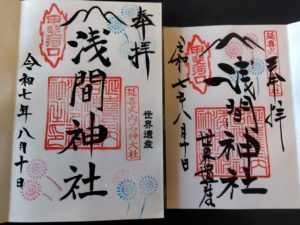 奉拝
延喜式内名神大社
世界遺産
浅間神社
甲斐河口
令和七年八月十日
奉拝
延喜式内名神大社
浅間神社
世界遺産
令和七年八月十日